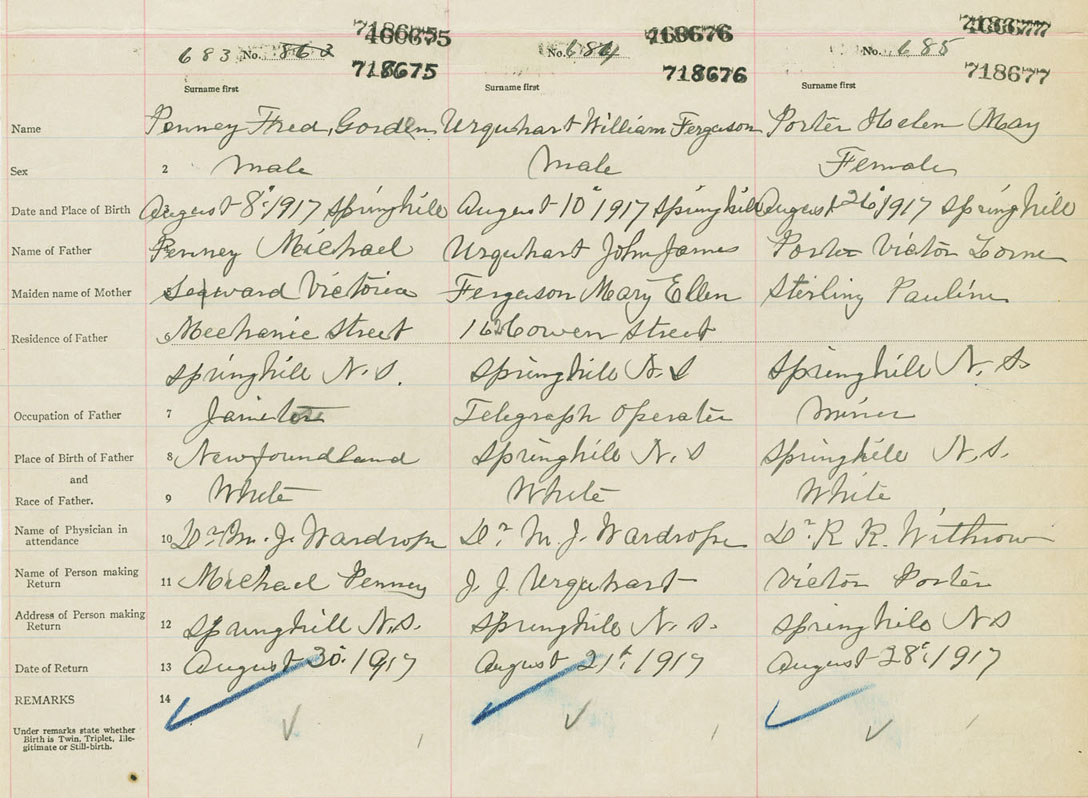 718675 718676 718677
683 No. 862 No. 684 No. 685
718675 718676 718677
Surname first Surname first Surname first
Name Penney Fred, Gorden Urquhart William Ferguson Porter Helen May
Sex 2 Male Male Female
Date and Place of Birth August 8e 1917 Springhill August 10e 1917 Springhill August 26e 1917 Springhill
Name of Father Penney Michael Urquhart John James Porter Victor Lorne
Maiden name of Mother Seaward Victoria Ferguson Mary Ellen Sterling Pauline
Residence of Father Mechanic Street 162 Cowen Street
Springhill N.S. Springhill N.S Springhill N.S.
Occupation of Father 7 Janitor Telegraph Operater Miner
Place of Birth of Father 8 Newfoundland Springhill N.S Springhill N.S.
and
Race of Father. 9 White White White
Name of Physician in
attendance 10 Dr M. J. Wardrope Dr M. J. Wardrope Dr R R. Withrow
Name of Person making
Return 11 Michael Penney J. J. Urquhart Victor Porter
Address of Person making
Return 12 Springhill N.S. Springhill N.S. Springhill N S
Date of Return 13 August 30e. 1917 August 21e. 1917 August 28e. 1917
REMARKS 14
Under remarks state whether
Birth is Twin, Triplet, Ille-
gitimate or Still-birth.